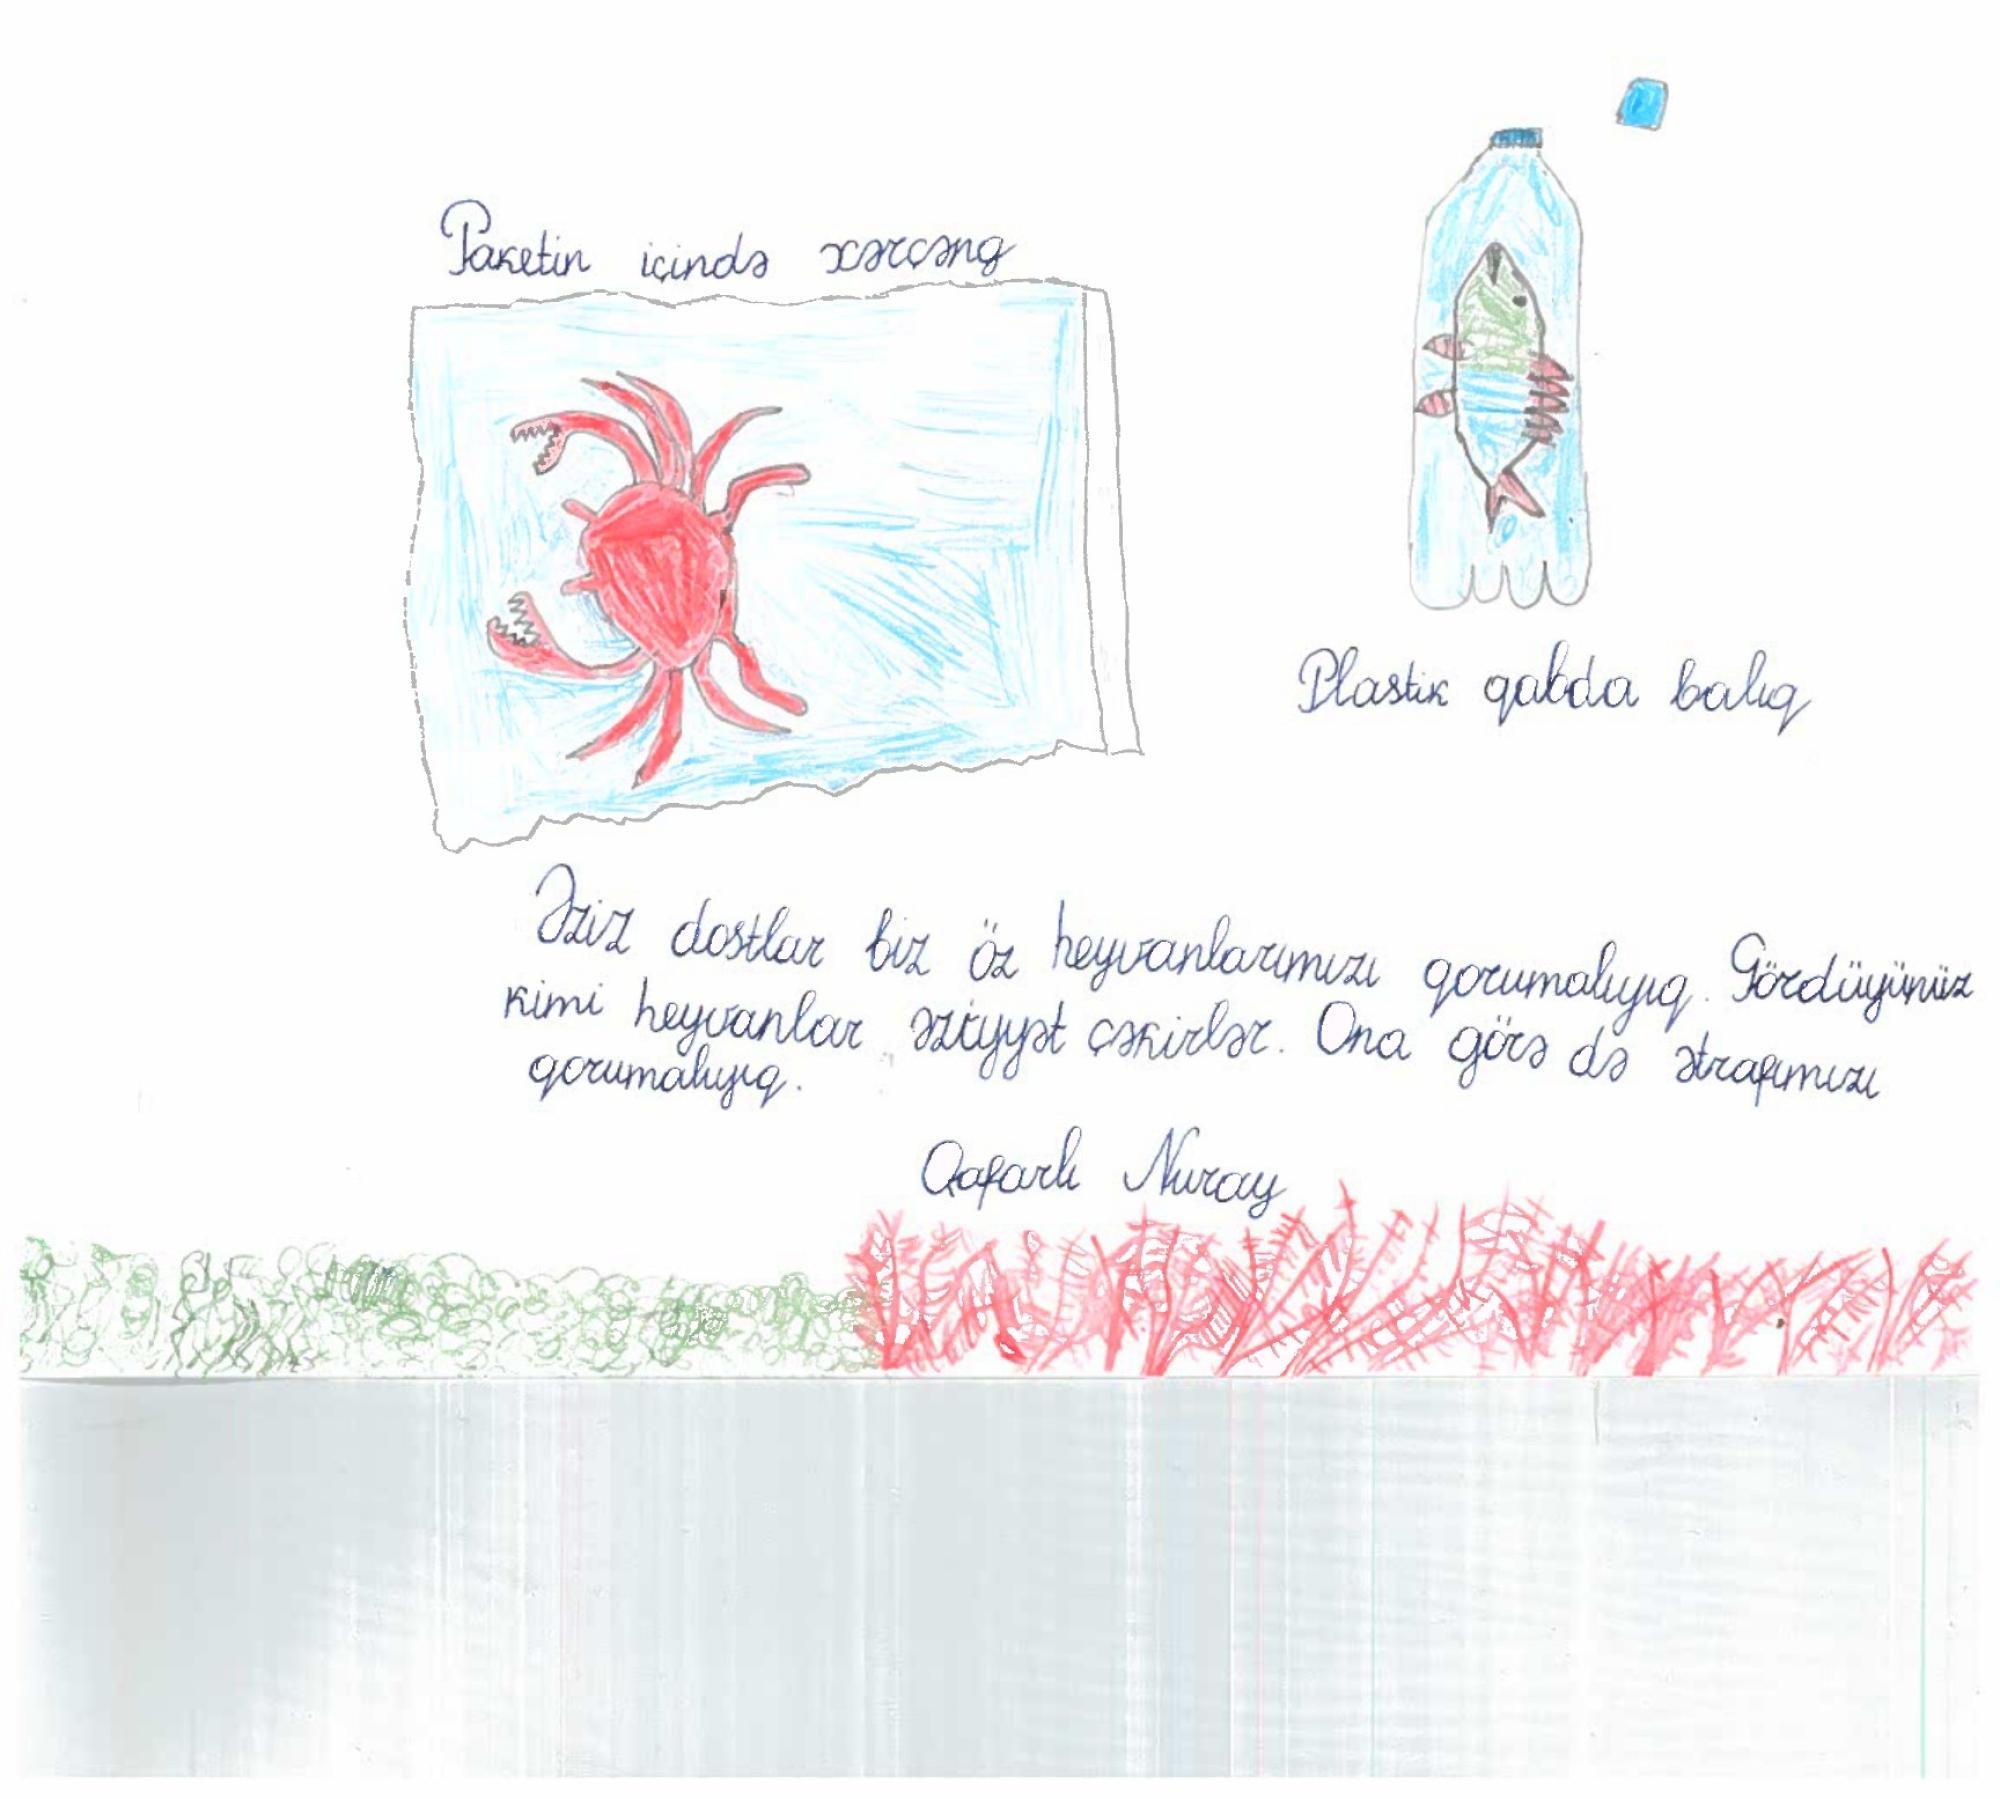 Paketin içində xərçəng
Plastik qabda balıq
Əziz dostlar biz öz heyvanlarımızı qorumalıyıq. Gördüyünüz
kimi heyvanlar əziyyət çəkirlər. Ona görə də ətrafımızı
qorumalıyıq.
Qafarlı Nuray